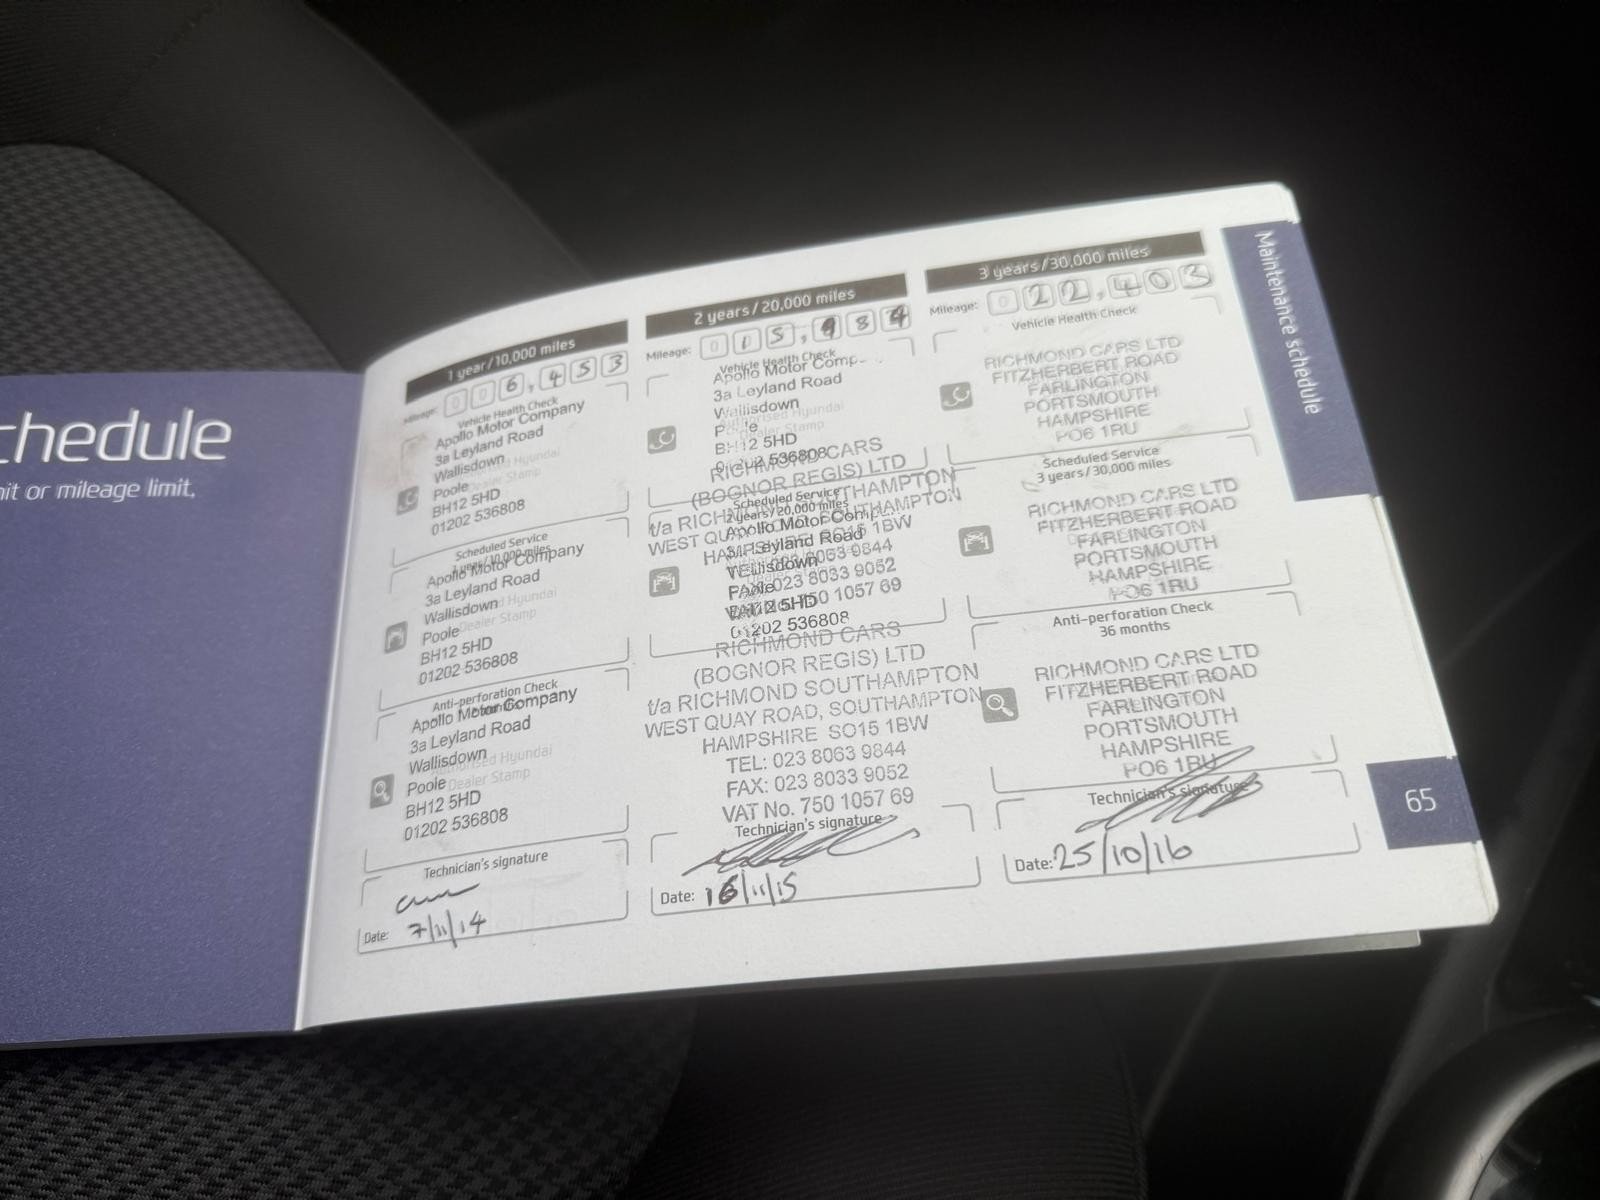 chedule
nit or mileage limit.
1 year/10,000 miles
Mileage: 006,453
Vehicle Health Check
Apollo Motor Company
3a Leyland Road
Wallisdown
Poole
BH12 5HD
01202 536808
Scheduled Service
1 year/10,000 miles
Apollo Motor Company
3a Leyland Road
Wallisdown
Poole Dealer Stamp
BH12 5HD
01202 536808
Anti-perforation Check
Apollo Motor Company
3a Leyland Road
Wallisdown
Authorised Hyundai
Poole Dealer Stamp
BH12 5HD
01202 536808
Technician's signature
Date: 7/11/14
2 years/20,000 miles
Mileage: 015,984
Vehicle Health Check
Apollo Motor Comp
3a Leyland Road
Wallisdown
Authorised Hyundai
BH12 5HD
01202 536808
RICHMOND CARS
(BOGNOR REGIS) LTD
Scheduled Service
2 years/20,000 miles
t/a RICHMOND SOUTHAMPTON
WEST QUAY ROAD, SOUTHAMPTON
Apollo Motor Comp
HAMPSHIRE SO15 1BW
3a Leyland Road
TEL: 023 8063 9844
Wallisdown
FAX: 023 8033 9052
Poole
VAT No. 750 1057 69
BH12 5HD
01202 536808
RICHMOND CARS
(BOGNOR REGIS) LTD
t/a RICHMOND SOUTHAMPTON
WEST QUAY ROAD, SOUTHAMPTON
HAMPSHIRE SO15 1BW
TEL: 023 8063 9844
FAX: 023 8033 9052
VAT No. 750 1057 69
Technician's signature
Date: 16/11/15
3 years/30,000 miles
Mileage: 022,403
Vehicle Health Check
RICHMOND CARS LTD
FITZHERBERT ROAD
FARLINGTON
PORTSMOUTH
HAMPSHIRE
PO6 1RU
Scheduled Service
3 years/30,000 miles
RICHMOND CARS LTD
FITZHERBERT ROAD
FARLINGTON
PORTSMOUTH
HAMPSHIRE
PO6 1RU
Anti-perforation Check
36 months
RICHMOND CARS LTD
FITZHERBERT ROAD
FARLINGTON
PORTSMOUTH
HAMPSHIRE
PO6 1RU
Technician's signature
Date: 25/10/16
Maintenance schedule
65